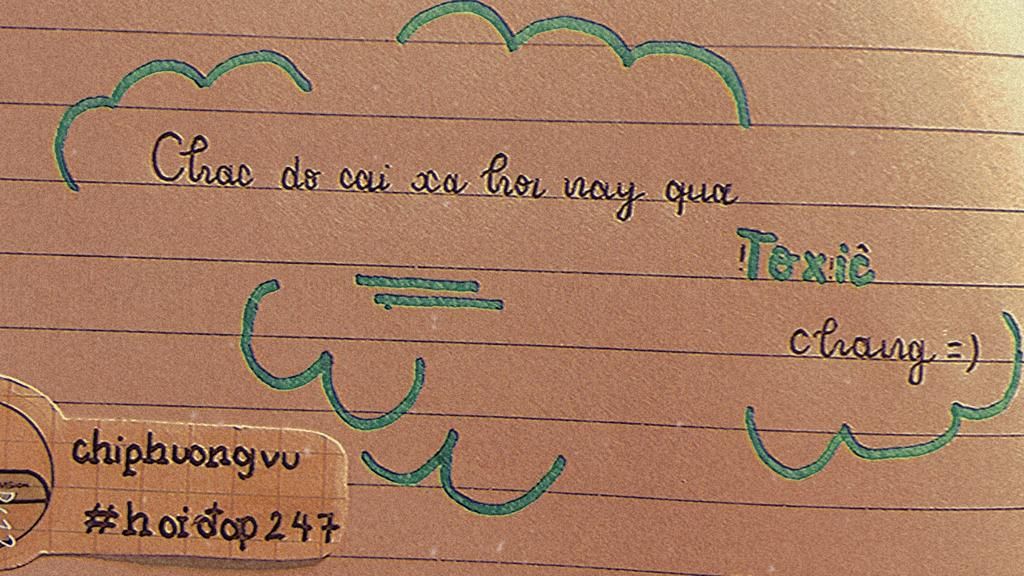 Chac do cai xa hoi nay qua
Toxic
chang =)
chiphuongvu
#hoiđop247